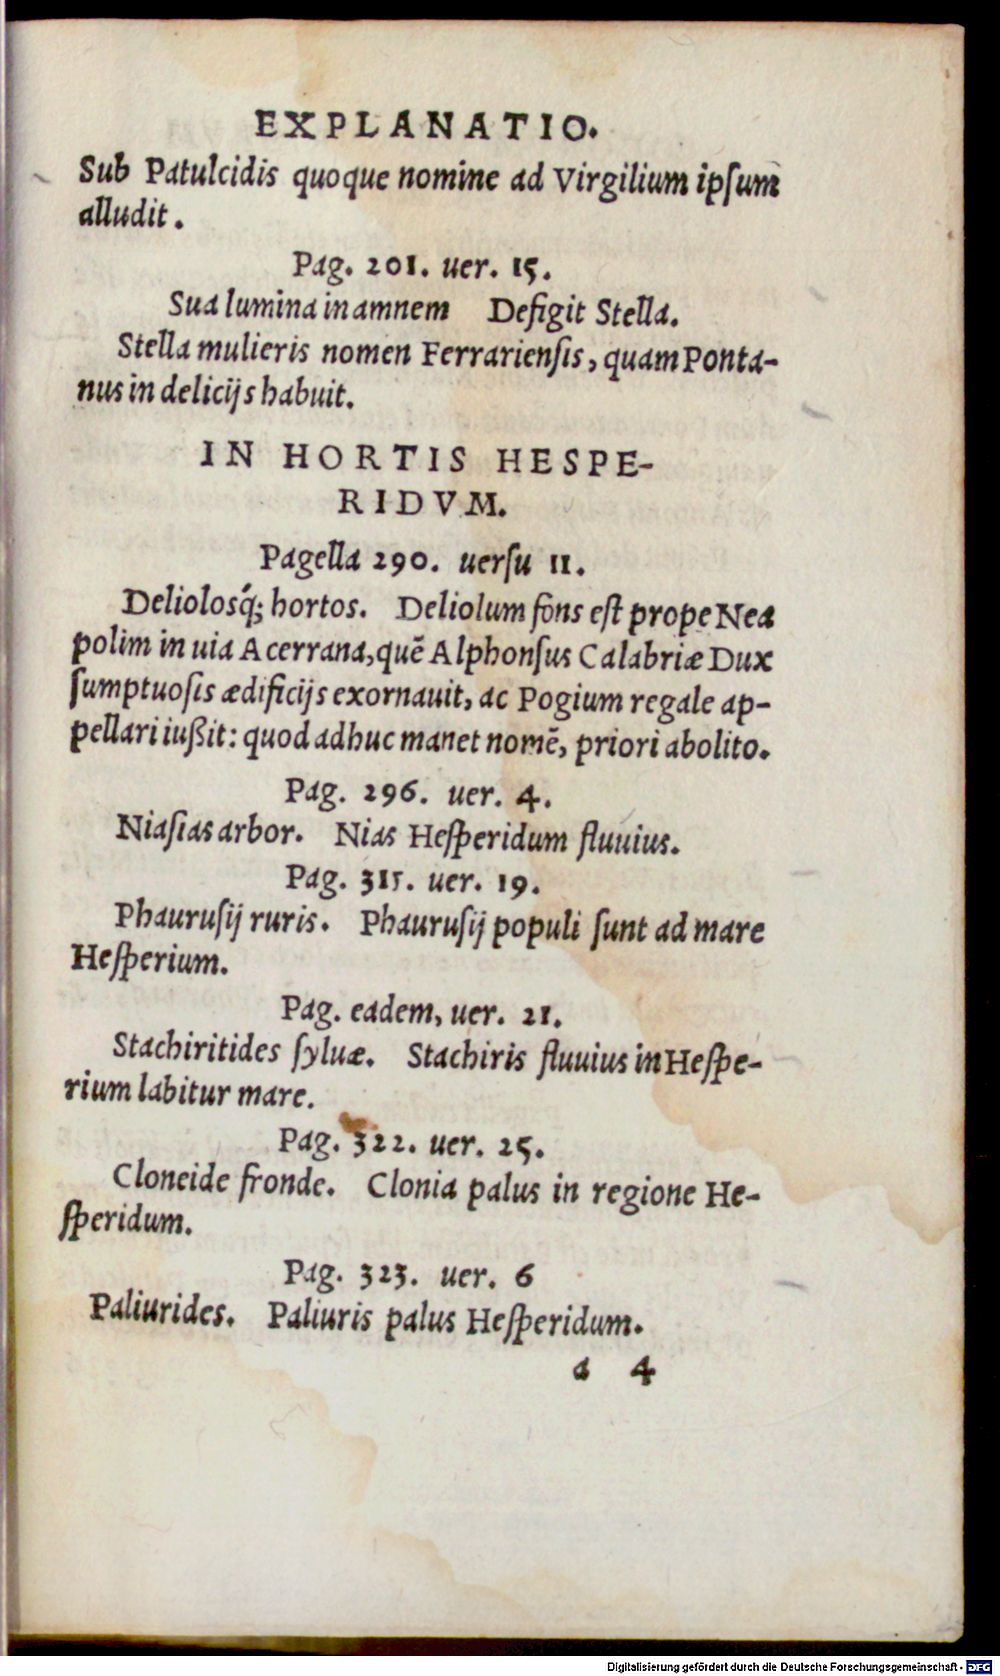 EXPLANATIO.
Sub Patulcidis quoque nomine ad Virgilium ipsum
alludit.
Pag. 201. uer. 15.
Sua lumina in amnem Defigit Stella.
Stella mulieris nomen Ferrariensis, quam Ponta-
nus in delicijs habuit.
IN HORTIS HESPE-
RIDVM.
Pagella 290. uersu 11.
Deliolosq́; hortos. Deliolum fons est prope Nea
polim in uia Acerrana, quẽ Alphonsus Calabriæ Dux
sumptuosis ædificijs exornauit, ac Pogium regale ap-
pellari iußit: quod adhuc manet nomẽ, priori abolito.
Pag. 296. uer. 4.
Niasias arbor. Nias Hesperidum fluuius.
Pag. 315. uer. 19.
Phaurusij ruris. Phaurusij populi sunt ad mare
Hesperium.
Pag. eadem, uer. 21.
Stachiritides syluæ. Stachiris fluuius in Hespe-
rium labitur mare.
Pag. 322. uer. 25.
Cloneide fronde. Clonia palus in regione He-
speridum.
Pag. 323. uer. 6
Paliurides. Paliuris palus Hesperidum.
a 4
Digitalisierung gefördert durch die Deutsche Forschungsgemeinschaft - DFG